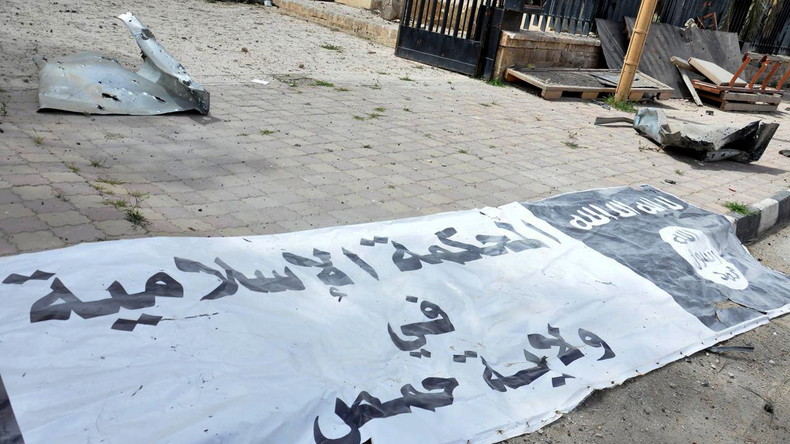 المحكمة الإسلامية
في
ولاية حمص
لا إله إلا الله
الله
رسول
محمد